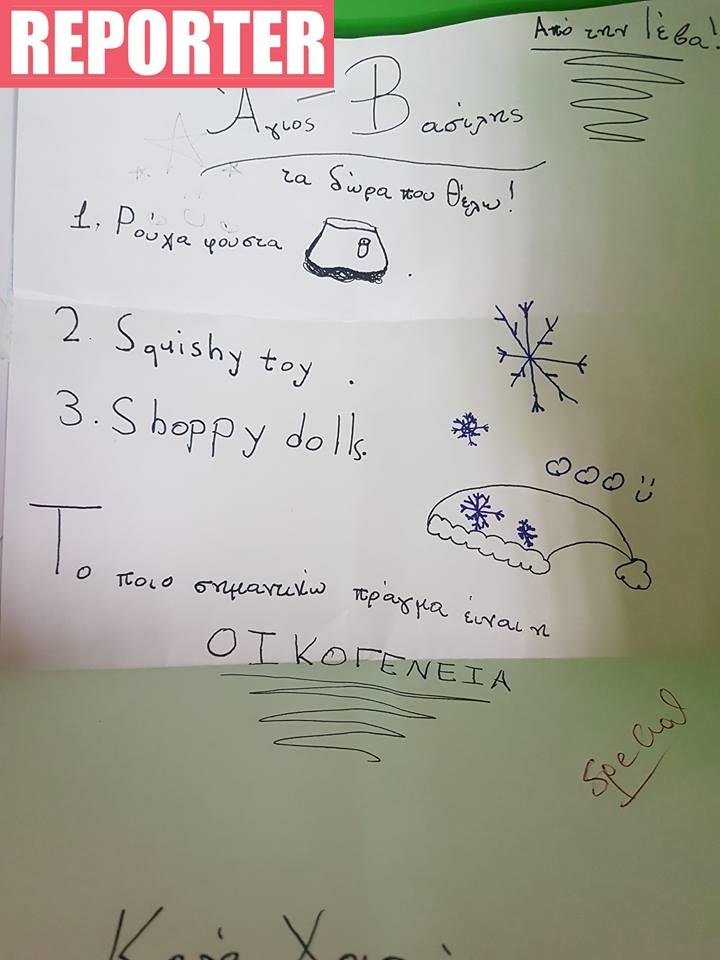 REPORTER
Από την Ιέβα!
Άγιος Βασίλης
τα δώρα που θέλω!
1. Ρούχα φούστα .
2. Squishy toy .
3. Shoppy dolls.
Το ποιο σημαντικό πράγμα έιναι η
ΟΙΚΟΓΕΝΕΙΑ
Special